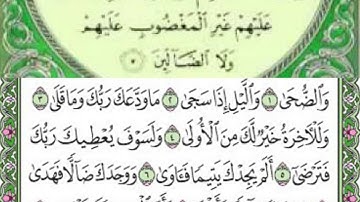 عَلَيْهِمْ غَيْرِ الْمَغْضُوبِ عَلَيْهِمْ
وَلَا الضَّالِّينَ
وَالضُّحَىٰ ١ وَاللَّيْلِ إِذَا سَجَىٰ ٢ مَا وَدَّعَكَ رَبُّكَ وَمَا قَلَىٰ ٣
وَلَلْآخِرَةُ خَيْرٌ لَّكَ مِنَ الْأُولَىٰ ٤ وَلَسَوْفَ يُعْطِيكَ رَبُّكَ
فَتَرْضَىٰ ٥ أَلَمْ يَجِدْكَ يَتِيمًا فَآوَىٰ ٦ وَوَجَدَكَ ضَالًّا فَهَدَىٰ